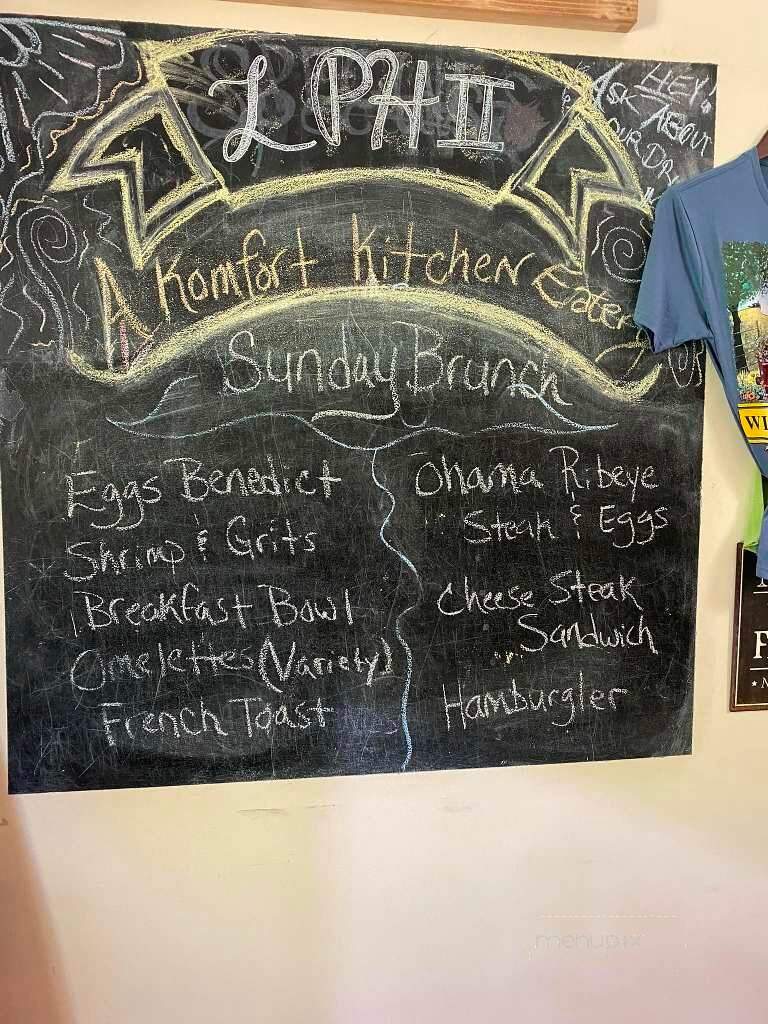 LPH II
HEY!
ASK ABOUT
OUR
A Komfort Kitchen Eatery
Sunday Brunch
Eggs Benedict
Shrimp & Grits
Breakfast Bowl
Omelettes (Variety)
French Toast
Ohama Ribeye
Steak & Eggs
Cheese Steak
Sandwich
Hamburgler
WI
menupix